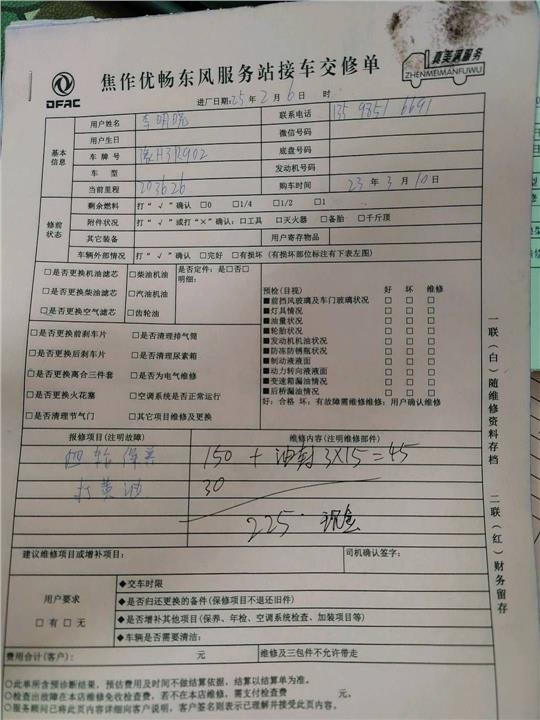 焦作优畅东风服务站接车交修单
DFAC
真美满服务
ZHENMEIMANFUWU
进厂日期:25年2月6日 时
基本信息
用户姓名 李明晓 联系电话 135 9851 6691
用户生日 微信号码
车牌号 豫H3R902 底盘号码
车型 发动机号码
当前里程 203626 购车时间 23年3月10日
修前状态
剩余燃料 打“√”确认 □0 □1/4 □1/2 □1
附件状况 打“√”或打“×”确认:□工具 □灭火器 □备胎 □千斤顶
其它装备 用户寄存物品
车辆外部情况 打“√”确认 □完好 □有损坏(有损坏部位标注有下表左图)
□是否更换机油滤芯 □柴油机油 是否定件:是□否□
明细:
□是否更换柴油滤芯 □汽油机油
□是否更换空气滤芯 □齿轮油
□是否更换前刹车片 □是否清理排气筒
□是否更换后刹车片 □是否清理尿素箱
□是否更换离合三件套 □是否为电气维修
□是否更换火花塞 □空调系统是否正常运行
□是否清理节气门 □其它项目维修及更换
预检(目视) 好 坏 维修
■前挡风玻璃及车门玻璃状况 □ □ □
■灯具情况 □ □ □
■油量状况 □ □ □
■轮胎状况 □ □ □
■发动机机油状况 □ □ □
■防冻防锈瓶状况 □ □ □
■制动液液面 □ □ □
■动力转向液液面 □ □ □
■变速箱漏油情况 □ □ □
■后桥漏油情况 □ □ □
好:合格 坏:有故障需维修维修:用户确认维修
报修项目(注明故障) 维修内容(注明维修部件)
四轮保养 150 + 油封 3×15=45
打黄油 30
225. 现金
建议维修项目或增补项目: 司机确认签字:
用户要求
□有 □无
◆交车时限
◆是否归还更换的备件(保修项目不退还旧件)
◆是否增补其他项目(保养、年检、空调系统检查、加装项目等)
◆车辆是否需要清洁:
费用合计(客户): 元 维修及三包件不允许带走
○此单所含预诊断结果,预估费用及时间不做结算依据,结算以结算单为准。
○检查出故障在本店维修免收检查费,若不在本店维修,需支付检查费 元。
○服务顾问已将此页内容详细向客户说明,客户签名则表示已理解并接受此页内容。
一联(白)随维修资料存档
二联(红)财务留存